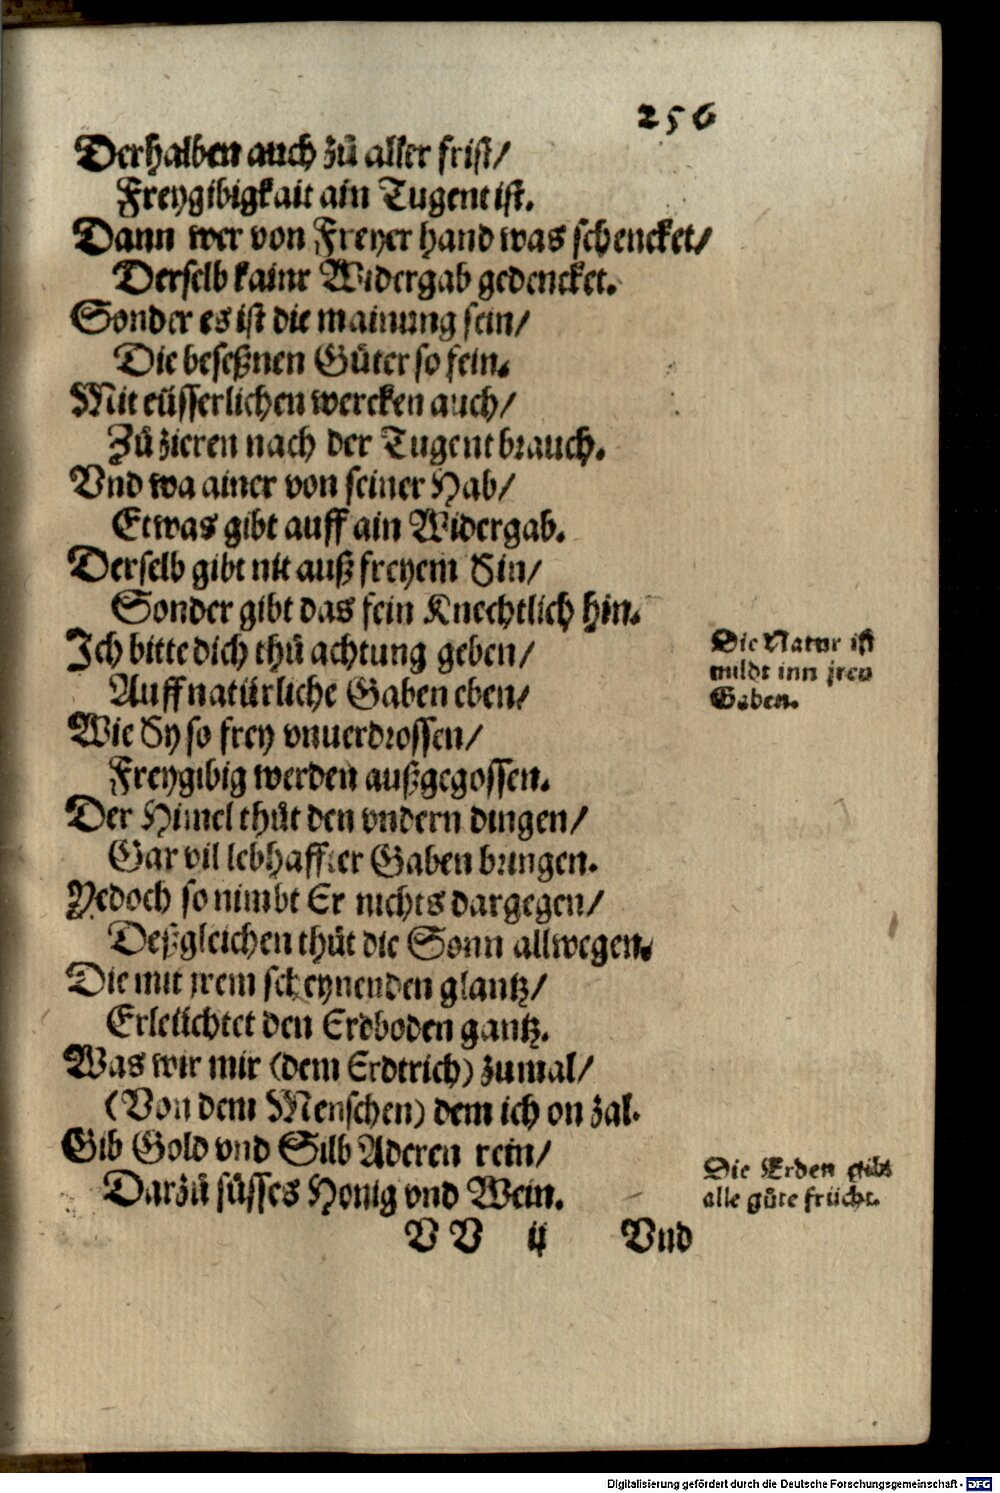 256
Derhalben auch zů aller frist/
Freygibigkait ain Tugent ist.
Dann wer von Freyer hand was schencket/
Derselb kaine Widergab gedencket.
Sonder es ist die mainung sein/
Die beseßnen Güter so fein.
Mit eüsserlichen wercken auch/
Zů zieren nach der Tugent brauch.
Vnd wa ainer von seiner Hab/
Etwas gibt auff ain Widergab.
Derselb gibt nit auß freyem Sin/
Sonder gibt das fein Knechtlich hin.
Ich bitte dich thů achtung geben/
Auff natürliche Gaben eben/
Wie Sy so frey vnuerdrossen/
Freygibig werden außgegossen.
Der Himel thůt den vndern dingen/
Gar vil lebhaffter Gaben bringen.
Yedoch so nimbt Er nichts dargegen/
Deßgleichen thůt die Sonn allwegen.
Die mit jrem scheynenden glantz/
Erleüchtet den Erdboden gantz.
Was wir mir (dem Erdtrich) zumal/
(Von dem Menschen) dem ich on zal.
Gib Gold vnd Silb Aderen rein/
Darzů süsses Honig vnd Wein.
Die Natur ist
mildt inn jren
Gaben.
Die Erden gibt
alle gůte frücht.
VV ij Vnd
Digitalisierung gefördert durch die Deutsche Forschungsgemeinschaft - DFG